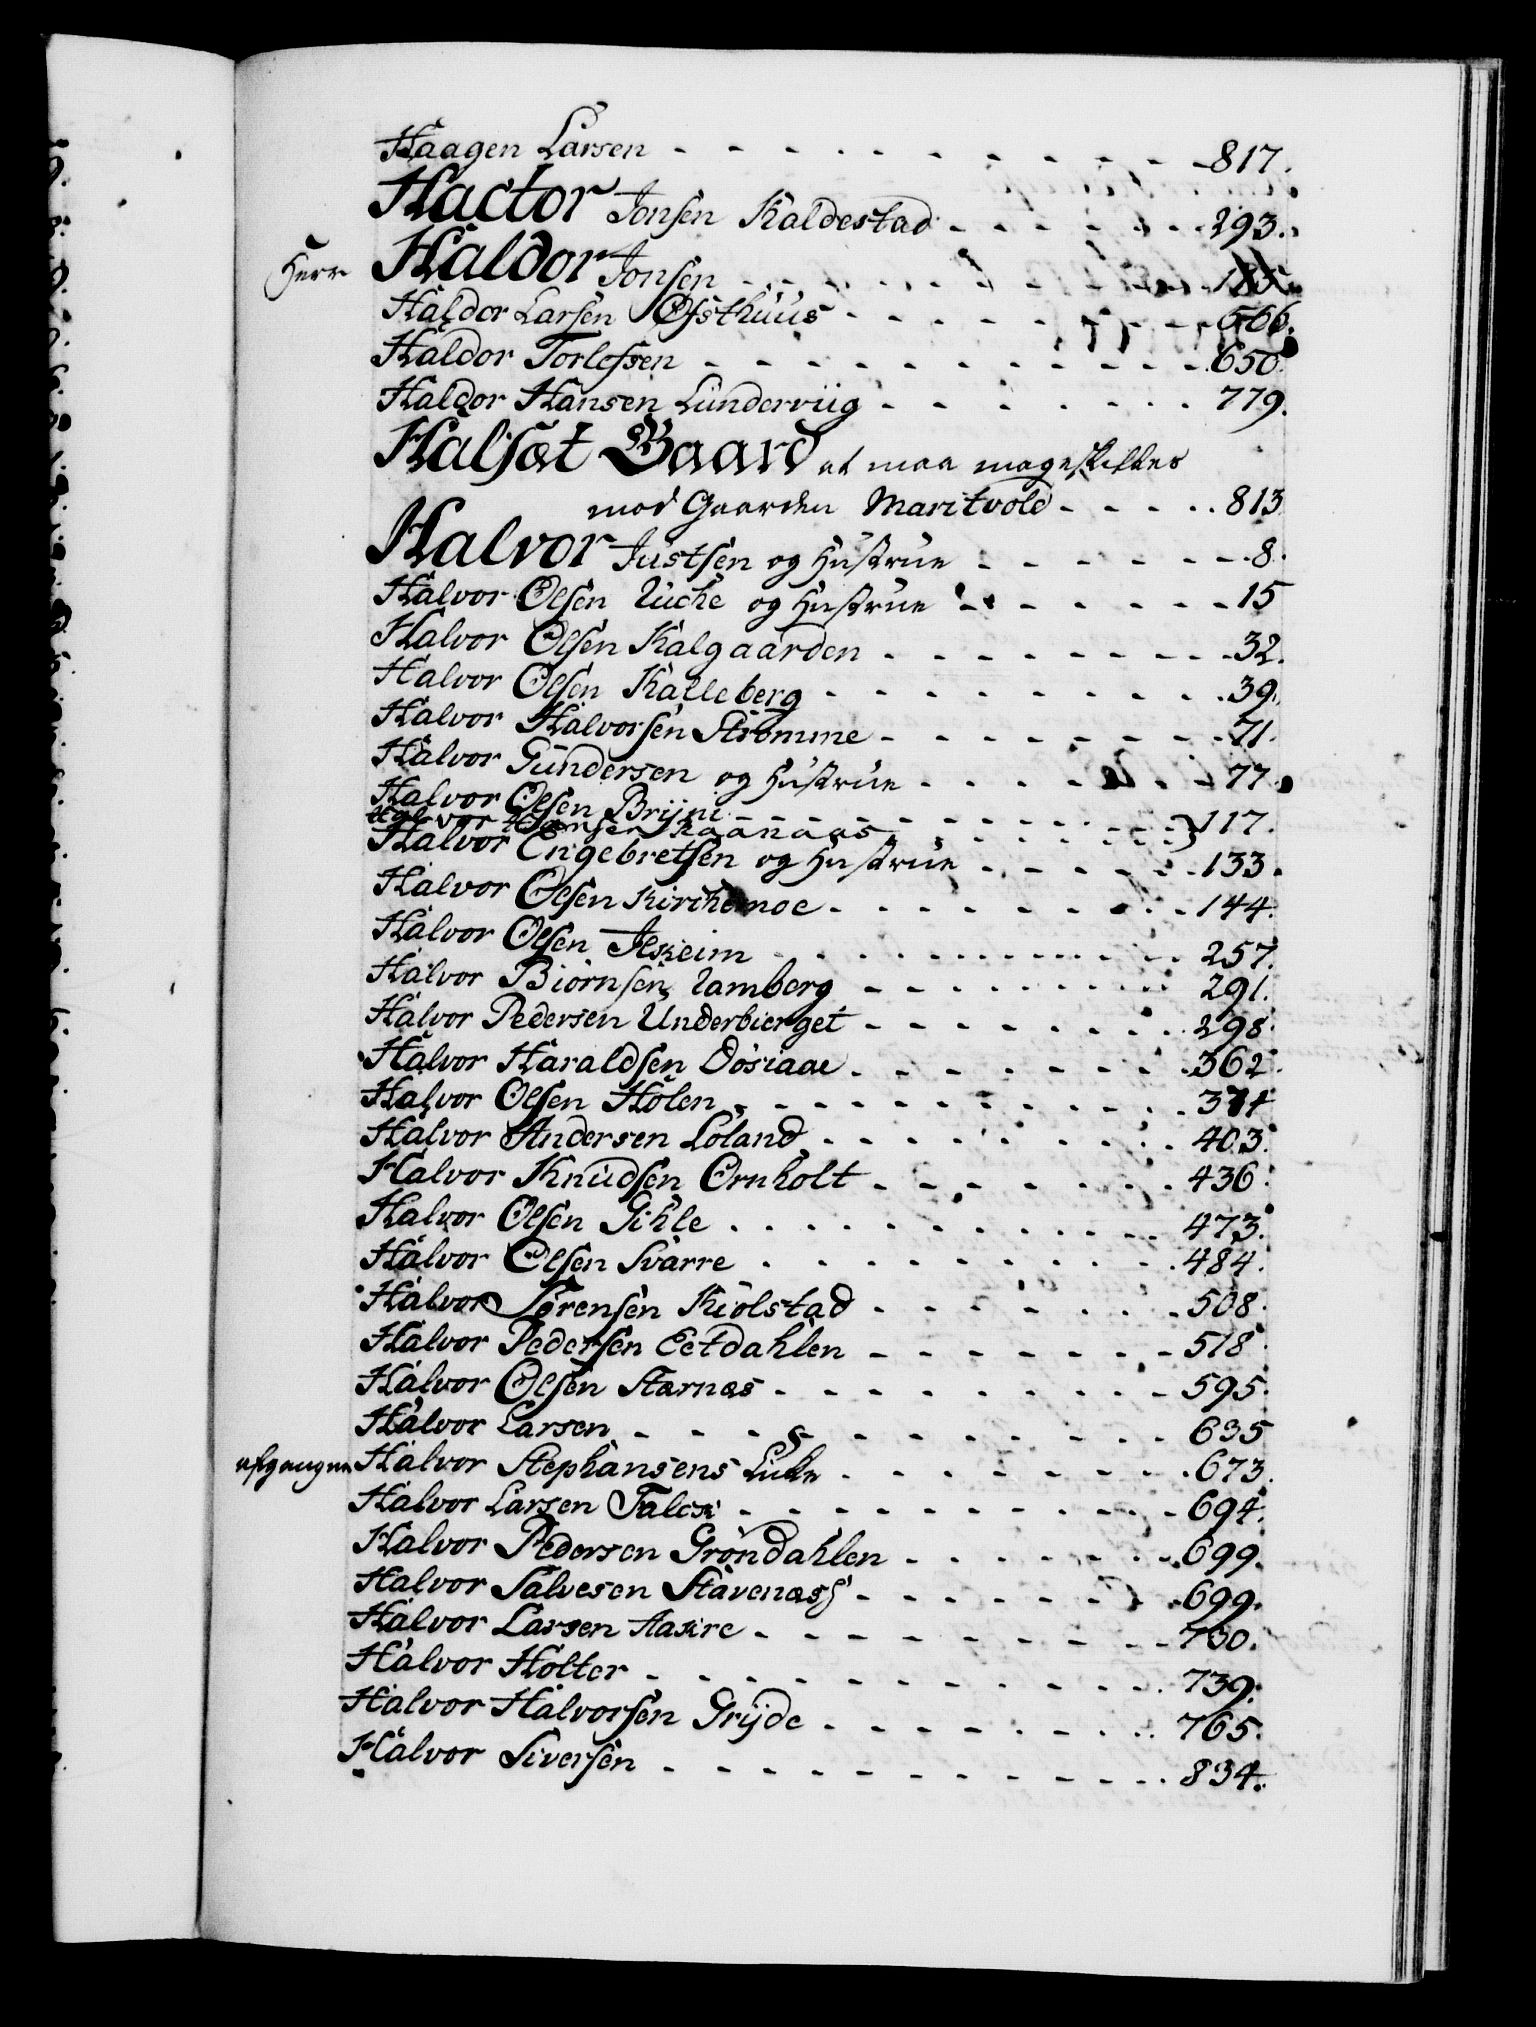 Haagen Larsen - - - - - - - - - - - 817.
Hactor Jonsen Kaldestad - - - - - - 293.
Herr Haldor Jonsen - - - - - - - -
Haldor Larsen Ofsthuus - - - - - - - 566.
Haldor Torlefsen - - - - - - - - - - 650.
Haldor Hansen Lunderviig - - - - - - - 779.
Halsæt Gaard at maa mageskiftes
mod Gaarden Maritvold - - - - - 813
Halvor Justsen og Hustrue - - - - - - 8.
Halvor Olsen Uuche og Hustrue - - - - - - 15
Halvor Olsen Kalgaarden - - - - - - - - 32.
Halvor Olsen Kalleberg - - - - - - - - - 39.
Halvor Halvorsen Strømme - - - - - - - - 71.
Halvor Gundersen og Hustrue - - - - - - 77.
Halvor Olsen Brÿni - - - - - - - - - -
Halvor Hansen Kaanaas - - - - - - } 117.
Halvor Engebretsen og Hustrue - - - - - 133.
Halvor Olsen Kirchemoe - - - - - - - - 144.
Halvor Olsen Jeskeim - - - - - - - - - 257.
Halvor Biørnsen Ramberg - - - - - - - 291.
Halvor Pedersen Underbierget - - - - - - - 298.
Halvor Haraldsen Døsiaae - - - - - - - 362.
Halvor Olsen Holen - - - - - - - - - -
Halvor Andersen Løland - - - - - - - - 403.
Halvor Knudsen Ornholt - - - - - - - 436.
Halvor Olsen Gihle - - - - - - - - - - 473.
Halvor Olsen Svarre - - - - - - - - - 484.
Halvor Sørensen Kiølstad - - - - - - - 508.
Halvor Pedersen Eetdahlen - - - - - - - 518.
Halvor Olsen Stærnæs - - - - - - - - - 595.
Halvor Larsen - - - - - - - - - - - 635
afgangne Halvor Stephansens Enke - - - - - - - - 673.
Halvor Larsen Falck - - - - - - - - - - 694.
Halvor Pedersen Grøndahlen - - - - - - - 699.
Halvor Salvesen Stavenæss - - - - - - - 699.
Halvor Larsen Aakre - - - - - - - - - 730.
Halvor Holter - - - - - - - - - - - - 739.
Halvor Halvorsen Grÿde - - - - - - - - 765.
Halvor Siversen - - - - - - - - - - - 834.